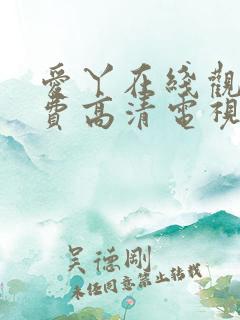 愛丫在綫觀
費高清電視
吴德剛
未经同意禁止转载